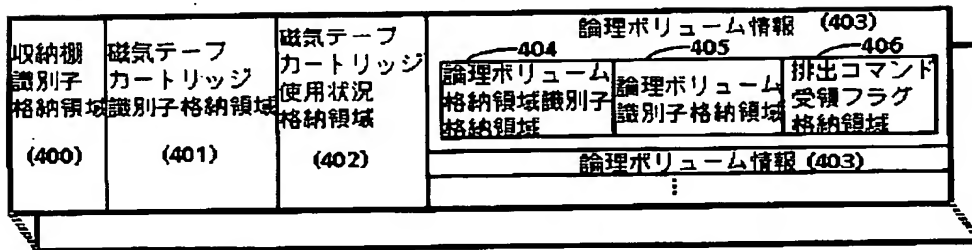 収納棚
識別子
格納領域
(400)
磁気テープ
カートリッジ
識別子格納領域
(401)
磁気テープ
カートリッジ
使用状況
格納領域
(402)
論理ボリューム情報 (403)
404
論理ボリューム
格納領域識別子
格納領域
405
論理ボリューム
識別子格納領域
406
排出コマンド
受領フラグ
格納領域
論理ボリューム情報 (403)
⋮